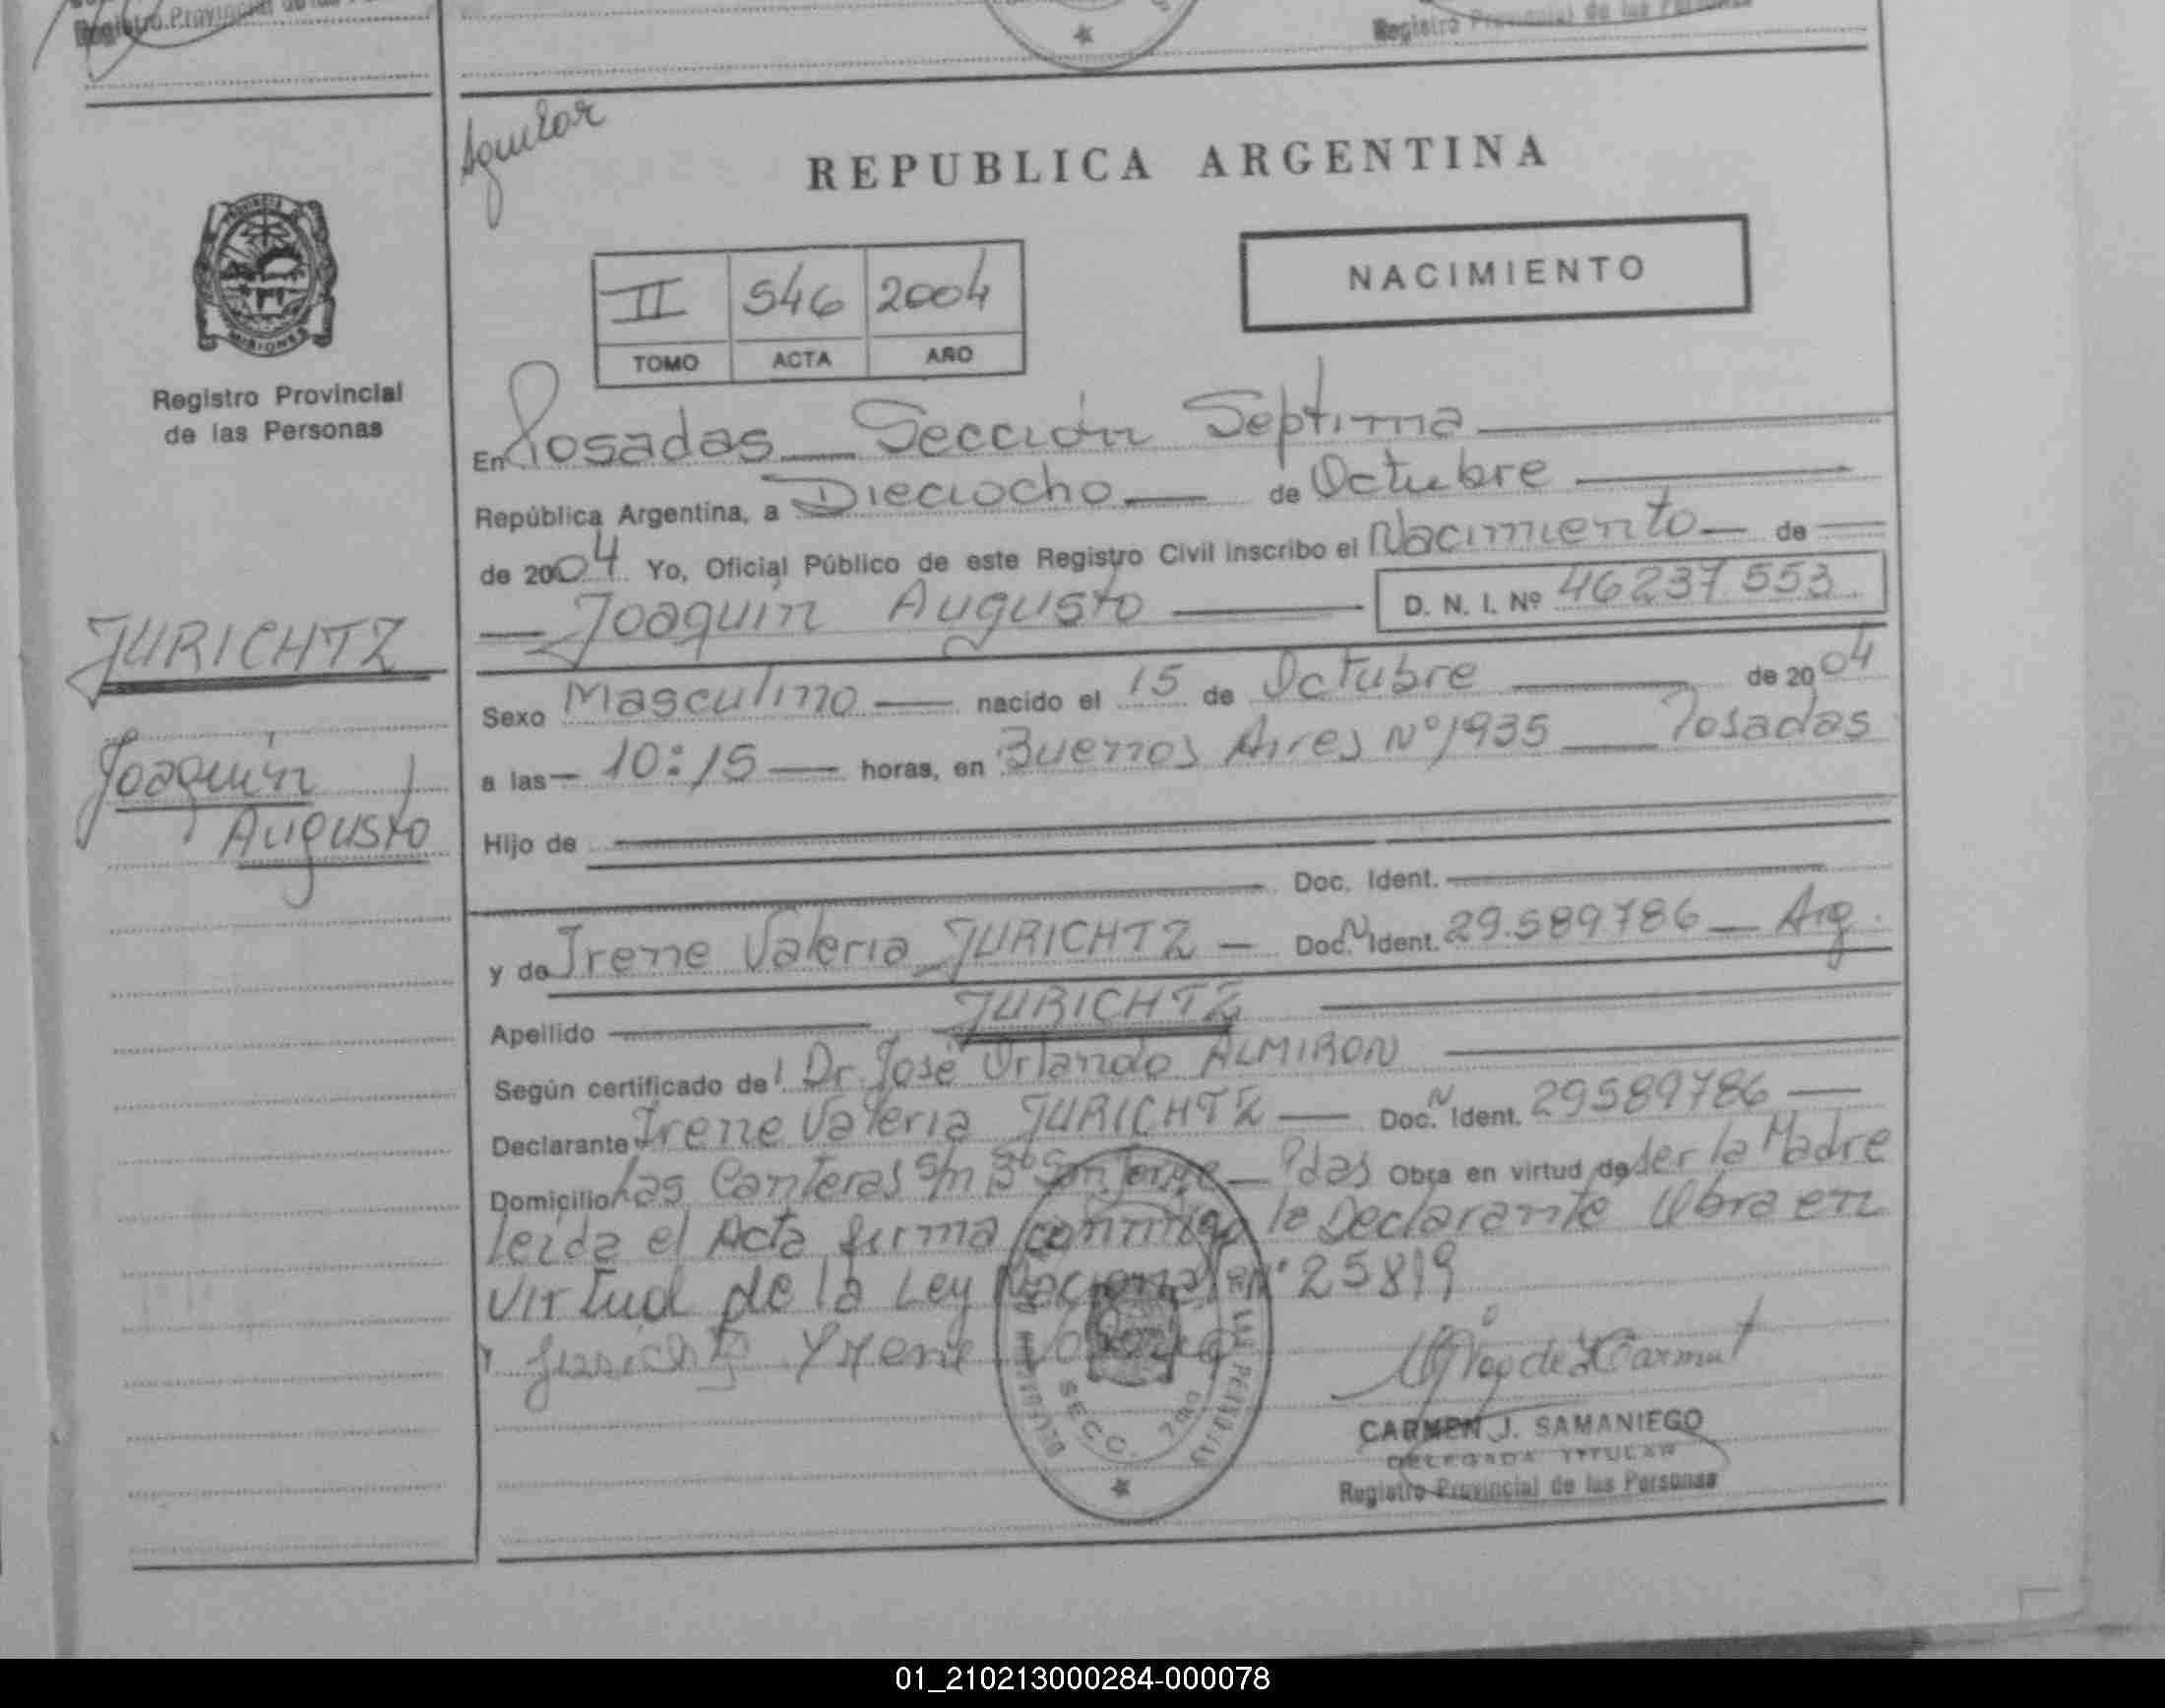 Registro Provincial de las Personas
Aguilar
REPUBLICA ARGENTINA
PROVINCIA DE
MISIONES
Registro Provincial
de las Personas
II 546 2004
TOMO ACTA AÑO
NACIMIENTO
En Posadas Sección Septima
República Argentina, a Dieciocho de Octubre
de 2004 Yo, Oficial Público de este Registro Civil inscribo el Nacimiento de
Joaquín Augusto D. N. I. Nº 46237553
JURICHTZ
Joaquín
Augusto
Sexo Masculino nacido el 15 de Octubre de 2004
a las 10:15 horas, en Buenos Aires Nº 1935 Posadas
Hijo de
Doc. Ident.
y de Irene Valeria JURICHTZ Doc. N Ident. 29.589786 Arg.
Apellido JURICHTZ
Según certificado de Dr. José Orlando ALMIRON
Declarante Irene Valeria JURICHTZ Doc. N Ident. 29589786
Domicilio Las Canteras S/n Bº San Jorge Pdas Obra en virtud de ser la Madre
leída el Acta firma conmigo la Declarante Obra en
virtud de la Ley Nacional nº 25819
Jurichtz Yrene Valeria
SECC. 7ma
CARMEN J. SAMANIEGO
DELEGADA TITULAR
Registro Provincial de las Personas
01_210213000284-000078